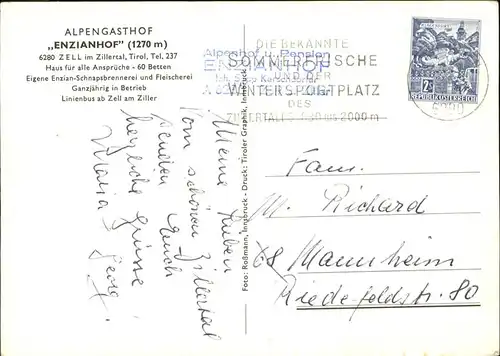 ALPENGASTHOF
„ENZIANHOF" (1270 m)
6280 ZELL im Zillertal, Tirol, Tel. 237
Haus für alle Ansprüche - 60 Betten
Eigene Enzian-Schnapsbrennerei und Fleischerei
Ganzjährig in Betrieb
Linienbus ab Zell am Ziller
Alpenhof u. Pension
ENZIANHOF
DIE BEKANNTE
SOMMERFRISCHE
UND DER
WINTERSPORTPLATZ
DES
ZILLERTALES 580 BIS 2000 m
REPUBLIK ÖSTERREICH
6280
Foto: Roßmann, Innsbruck - Druck: Tiroler Graphik, Innsbruck
Meine Lieben
Vom schönen Zillertal
senden Euch
herzliche Grüsse
Maria
Fam.
M. Richard
68 Mannheim
Riedfeldstr. 80